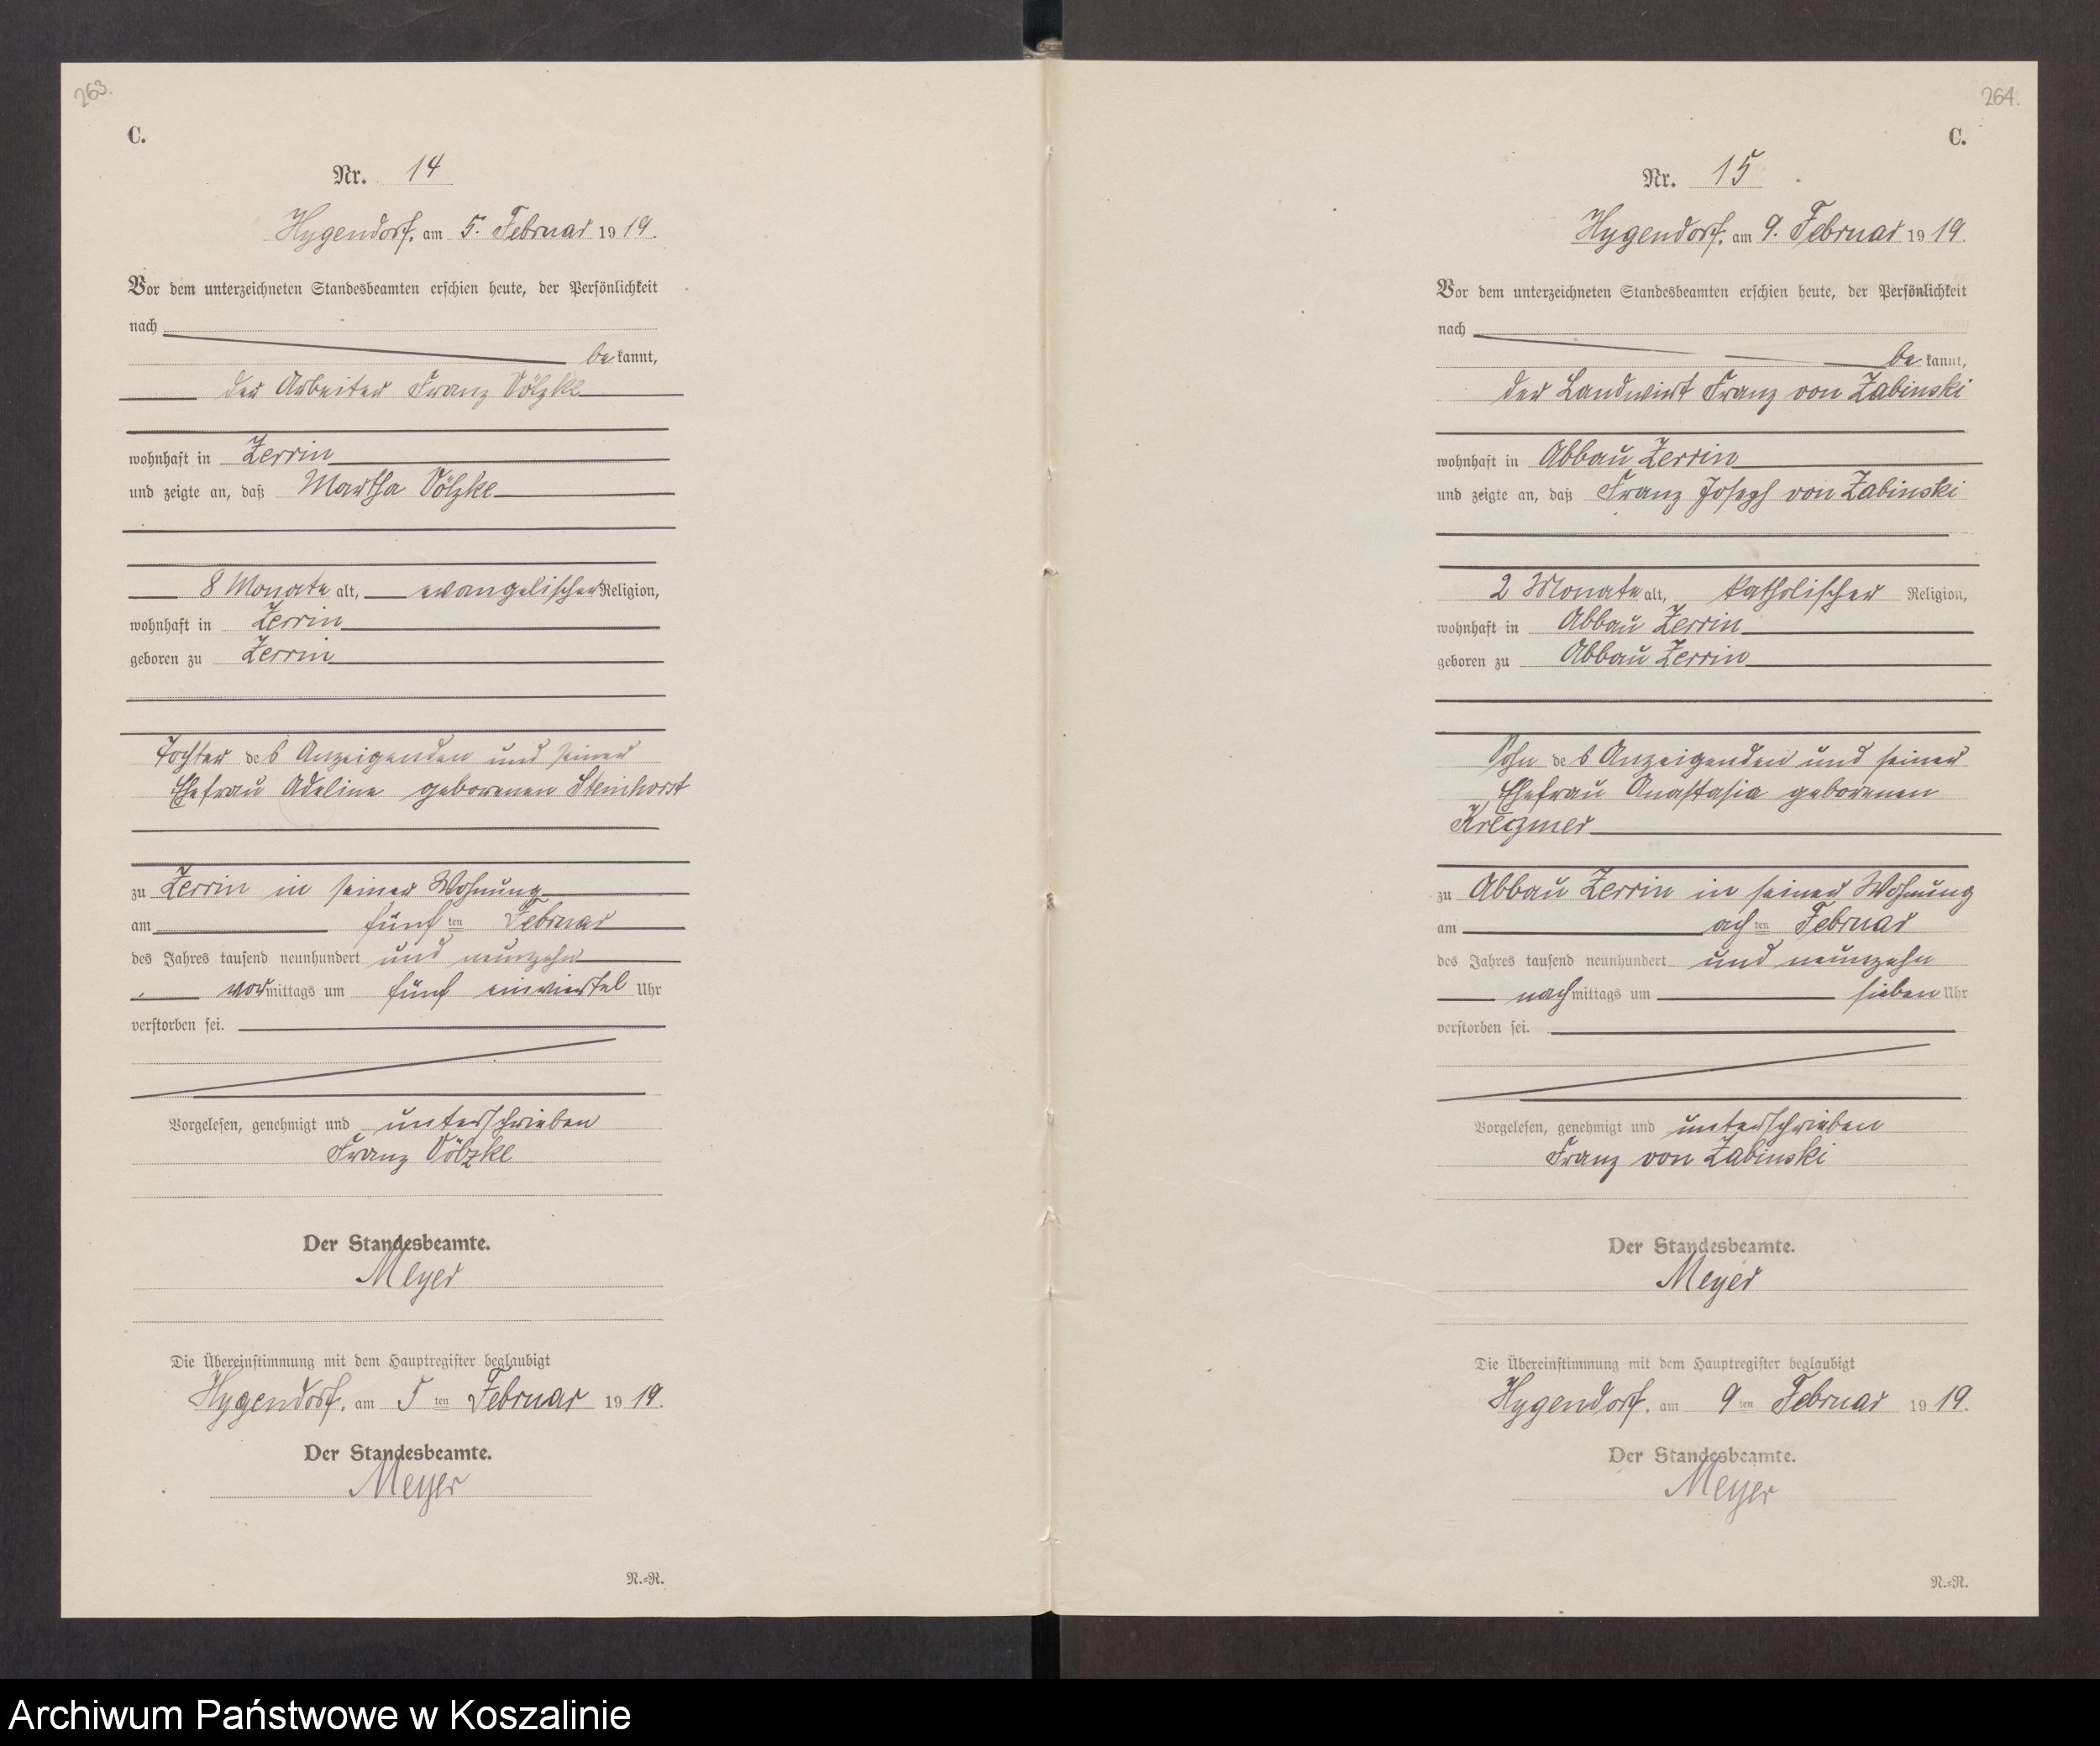 263.
C.
Nr. 14
Hygendorf, am 5. Februar 1919.
Vor dem unterzeichneten Standesbeamten erschien heute, der Persönlichkeit
nach
be kannt,
der Arbeiter Franz Völzke
wohnhaft in Zerrin
und zeigte an, daß Martha Völzke
8 Monate alt, evangelischer Religion,
wohnhaft in Zerrin
geboren zu Zerrin
Tochter des Anzeigenden und seiner
Ehefrau Adeline geborenen Steinhorst
zu Zerrin in seiner Wohnung
am fünf ten Februar
des Jahres tausend neunhundert und neunzehn
vormittags um fünf einviertel Uhr
verstorben sei.
Vorgelesen, genehmigt und unterschrieben
Franz Völzke
Der Standesbeamte.
Meyer
Die Übereinstimmung mit dem Hauptregister beglaubigt
Hygendorf, am 5 ten Februar 1919.
Der Standesbeamte.
Meyer
N.=N.
264.
C.
Nr. 15
Hygendorf, am 9. Februar 1919.
Vor dem unterzeichneten Standesbeamten erschien heute, der Persönlichkeit
nach
be kannt,
der Landwirt Franz von Zabinski
wohnhaft in Abbau Zerrin
und zeigte an, daß Franz Joseph von Zabinski
2 Monate alt, katholischer Religion,
wohnhaft in Abbau Zerrin
geboren zu Abbau Zerrin
Sohn des Anzeigenden und seiner
Ehefrau Anastasia geborenen
Kreczmer
zu Abbau Zerrin in seiner Wohnung
am ach ten Februar
des Jahres tausend neunhundert und neunzehn
nachmittags um sieben Uhr
verstorben sei.
Vorgelesen, genehmigt und unterschrieben
Franz von Zabinski
Der Standesbeamte.
Meyer
Die Übereinstimmung mit dem Hauptregister beglaubigt
Hygendorf, am 9 ten Februar 1919.
Der Standesbeamte.
Meyer
N.=N.
Archiwum Państwowe w Koszalinie